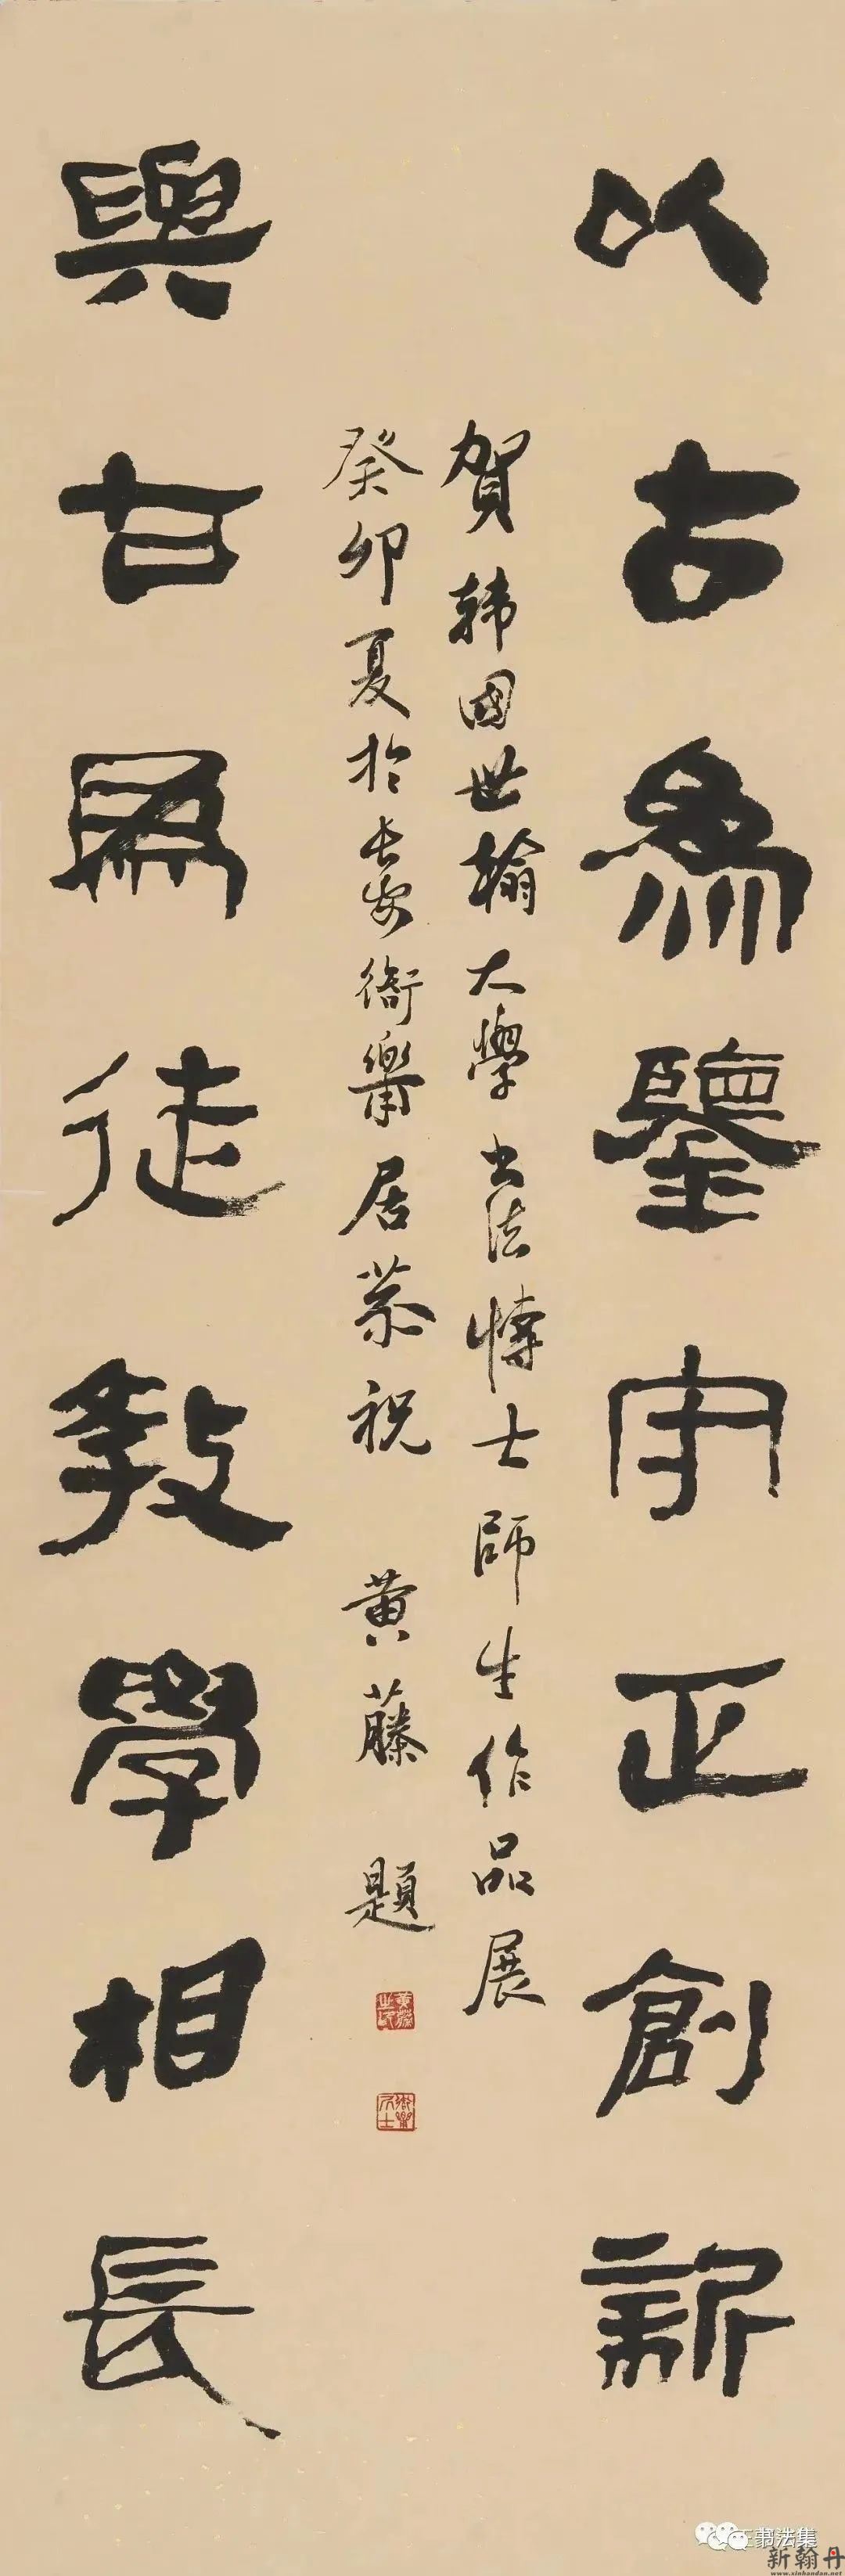 以古為鑒守正創新
賀韓國世翰大學書法博士師生作品展
癸卯夏於長安居恭祝 黃藤題
黃藤之印
與古為徒教學相長
書法集
新翰丹
www.xinhandan.net